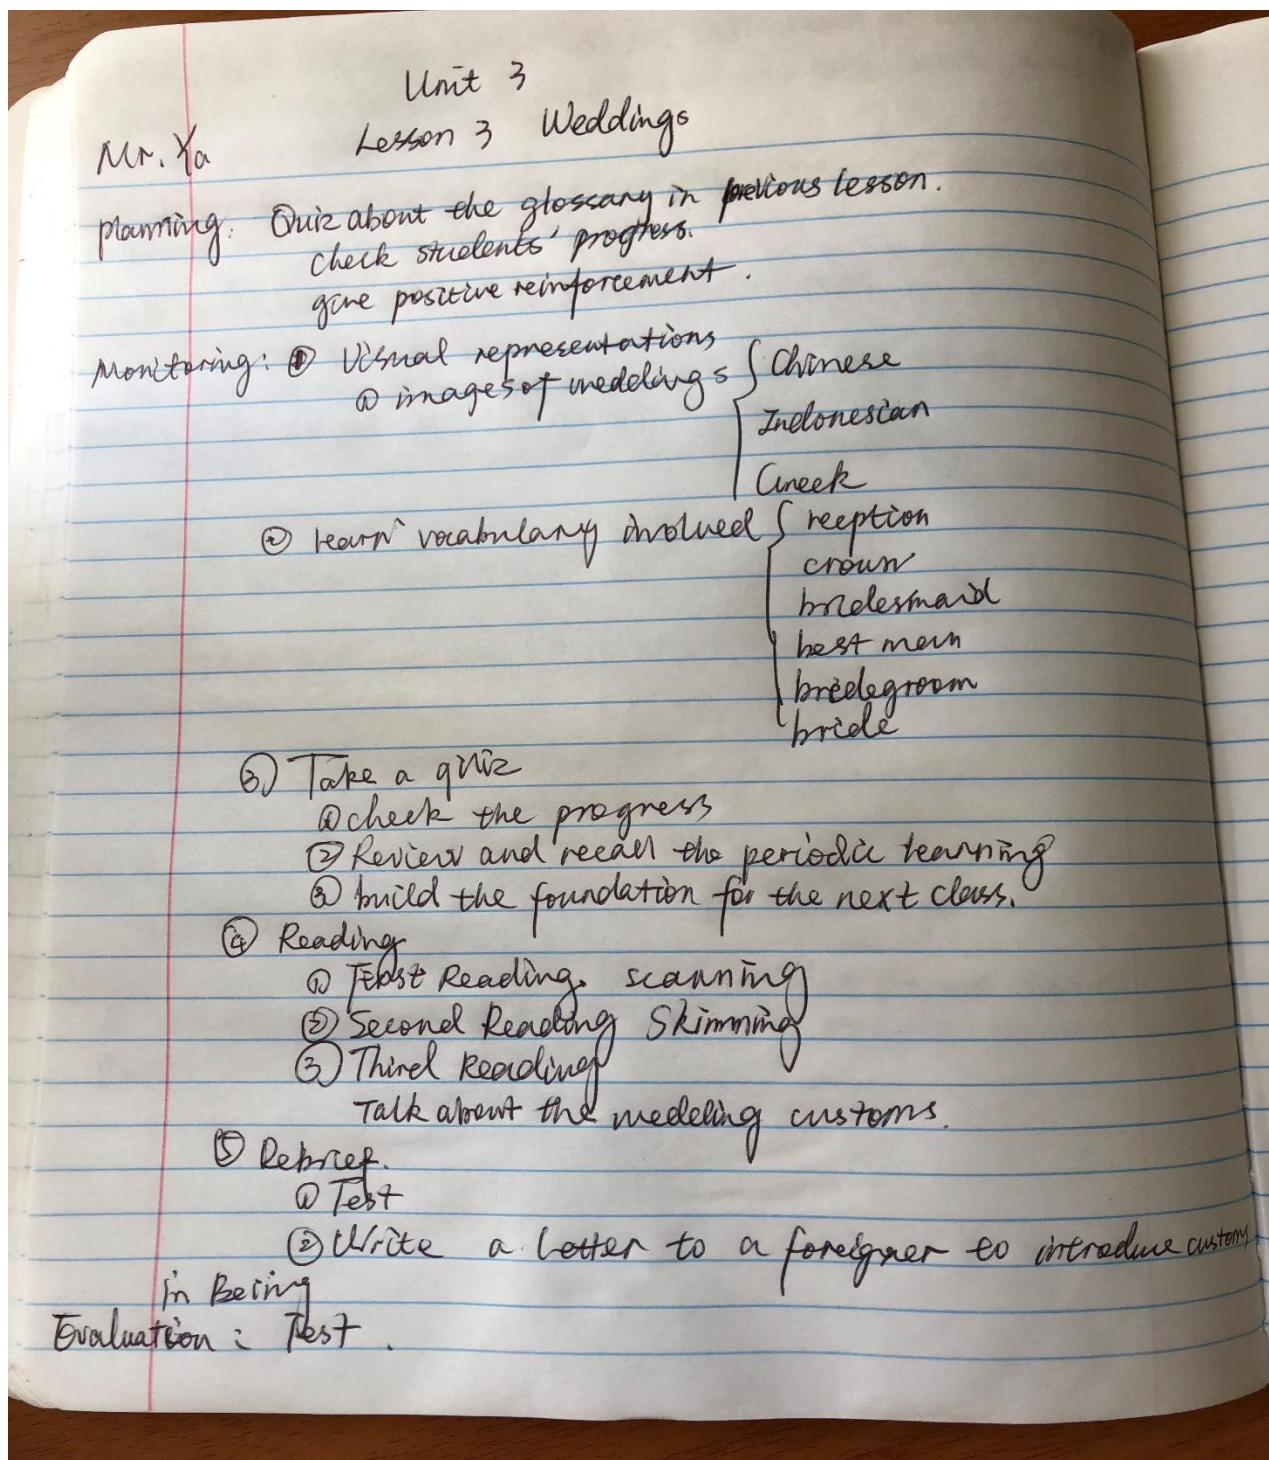 Unit 3
Lesson 3 Weddings
Mr. Ya
planning: Quiz about the glossary in previous lesson.
check students' progress.
give positive reinforcement.
Monitoring: ① Visual representations
① images of weddings { Chinese
Indonesian
Greek
② learn vocabulary involved { reeption
crown
bridesmaid
best man
bridegroom
bride
③ Take a quiz
① check the progress
② Review and recall the periodic learning
③ build the foundation for the next class.
④ Reading
① First Reading. scanning
② Second Reading Skimming
③ Third Reading
Talk about the wedding customs.
⑤ Debrief.
① Test
② Write a letter to a foreigner to introduce customs
in Beijing
Evaluation: Test.